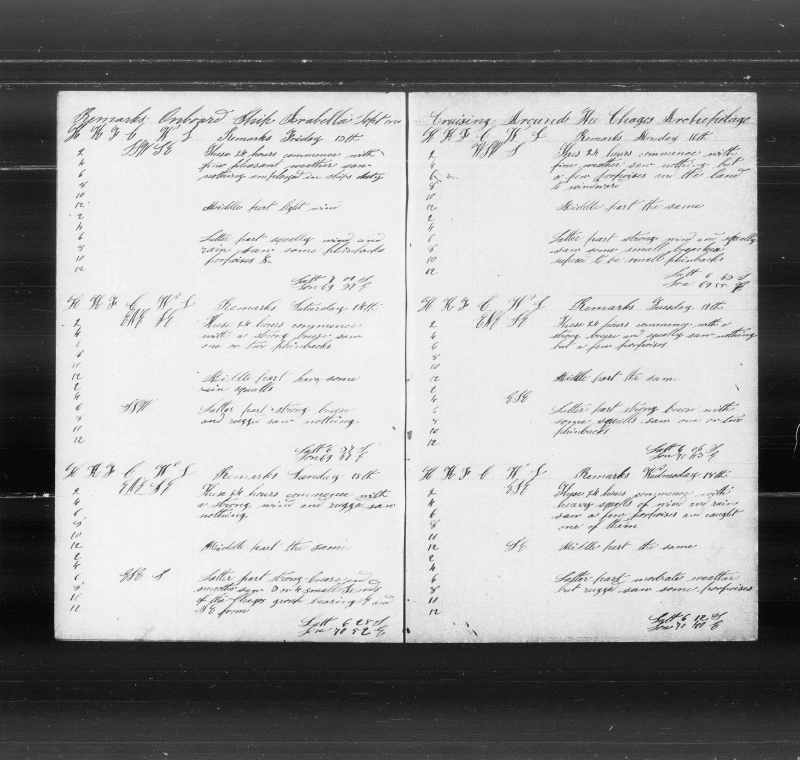 Remarks Onboard Ship Arabella Sept
H K F C W L Remarks Friday 13th
2 SSW SE These 24 hours commence with
4 fine pleasant weather saw
6 nothing employed in ships duty
8
10
12 Middle part light wind
2
4
6 Latter part squally wind and
8 rain saw some finbacks
10 porpoises &c
12
Latt 7 S
Lon 69 37 E
H K F C W L Remarks Saturday 14th
2 ENE SE These 24 hours commence
4 with a strong breeze saw
6 one or two finbacks
8
10
12 Middle part heavy some
2 rain squalls
4
6 SSW Latter part strong breeze
8 and rugged saw nothing
10
12
Latt 6 S
Lon 69 E
H K F C W L Remarks Sunday 15th
2 ENE SE These 24 hours commence with
4 a strong wind and rugged saw
6 nothing
8
10
12 Middle part the same
2
4
6 ESE S Latter part strong breeze and
8 saw 3 or 4 small
10 of the Chagos group bearing E and
12 SE from
Latt 6 25 S
Lon 70 52 E
Cruising Around The Chagos Archepelago
H K F C W L Remarks Monday 16th
2 WSW S This 24 hours commence with
4 fine weather saw nothing but
6 a few porpoises and the land
8 to windward
10
12 Middle part the same
2
4
6 Latter part strong wind and squally
8 saw some small
10 to be small finbacks
12
Latt 6 S
Lon 69 55 E
H K F C W L Remarks Tuesday 17th
2 ENE SE These 24 hours commenc with a
4 strong breeze and squally saw nothing
6 but a few porpoises
8
10
12 Middle part the same
2
4 ESE
6 Latter part strong breeze with
8 some squalls saw one or two
10 finbacks
12
Latt 6 06 S
Lon 71 E
H K F C W L Remarks Wednesday 18th
2 ESE These 24 hours commence with
4 heavy squalls of wind and rain
6 saw a few porpoises and caught
8 one of them
10
12 SE Middle part the same
2
4
6 Latter part modrate weather
8 but rugged saw some porpoises
10
12
Latt 6 12 S
Lon 71 E